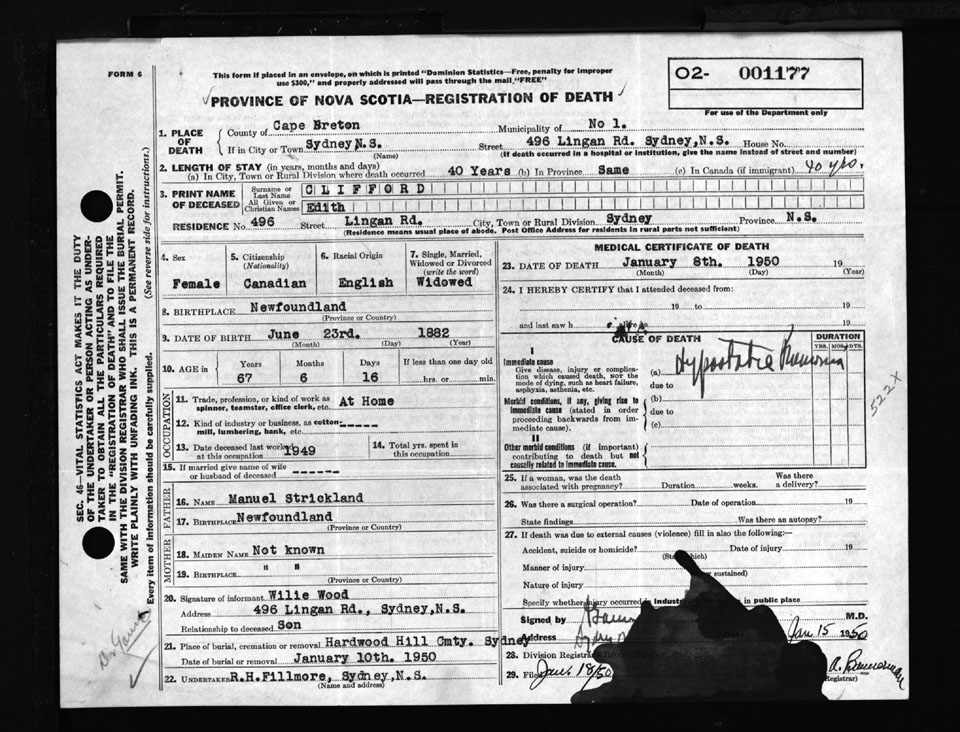 FORM 6
This form if placed in an envelope, on which is printed "Dominion Statistics—Free, penalty for improper
use $300," and properly addressed will pass through the mail, "FREE"
PROVINCE OF NOVA SCOTIA—REGISTRATION OF DEATH
O2- 001177
For use of the Department only
1. PLACE OF DEATH
County of Cape Breton Municipality of No 1.
If in City or Town Sydney, N.S. Street 496 Lingan Rd. Sydney, N.S. House No.
(Name) (If death occurred in a hospital or institution, give the name instead of street and number)
2. LENGTH OF STAY (in years, months and days)
(a) In City, Town or Rural Division where death occurred 40 Years (b) In Province Same (c) In Canada (if immigrant) 40 yrs.
3. PRINT NAME OF DECEASED
Surname or Last Name CLIFFORD
All Given or Christian Names Edith
RESIDENCE No. 496 Street Lingan Rd. City, Town or Rural Division Sydney Province N.S.
(Residence means usual place of abode. Post Office Address for residents in rural parts not sufficient)
4. Sex
Female
5. Citizenship (Nationality)
Canadian
6. Racial Origin
English
7. Single, Married, Widowed or Divorced (write the word)
Widowed
8. BIRTHPLACE Newfoundland
(Province or Country)
9. DATE OF BIRTH June 23rd. 1882
(Month) (Day) (Year)
10. AGE in Years Months Days If less than one day old
67 6 16 hrs. or min.
OCCUPATION
11. Trade, profession, or kind of work as
spinner, teamster, office clerk, etc. At Home
12. Kind of industry or business, as cotton-
mill, lumbering, bank, etc. -----
13. Date deceased last worked
at this occupation 1949
14. Total yrs. spent in
this occupation
15. If married give name of wife
or husband of deceased -----
FATHER
16. NAME Manuel Strickland
17. BIRTHPLACE Newfoundland
(Province or Country)
MOTHER
18. MAIDEN NAME Not known
19. BIRTHPLACE " "
(Province or Country)
20. Signature of informant Wilie Wood
Address 496 Lingan Rd., Sydney, N.S.
Relationship to deceased Son
21. Place of burial, cremation or removal Hardwood Hill Cmty. Sydney
Date of burial or removal January 10th. 1950
22. UNDERTAKER R.H.Fillmore, Sydney, N.S.
(Name and address)
MEDICAL CERTIFICATE OF DEATH
23. DATE OF DEATH January 8th. 1950 19
(Month) (Day) (Year)
24. I HEREBY CERTIFY that I attended deceased from:
19 to 19
and last saw h 19
CAUSE OF DEATH
DURATION
YRS. MOS. DYS.
I
Immediate cause
Give disease, injury or complica-
tion which caused death, NOT the
mode of dying, such as heart failure,
asphyxia, asthenia, etc.
(a) Hypostatic Pneumonia
due to
Morbid conditions, if any, giving rise to
immediate cause (stated in order
proceeding backwards from im-
mediate cause).
(b)
due to
(c)
522X
II
Other morbid conditions (if important)
contributing to death but not
causally related to immediate cause.
25. If a woman, was the death
associated with pregnancy? Duration weeks. Was there
a delivery?
26. Was there a surgical operation? Date of operation 19
State findings Was there an autopsy?
27. If death was due to external causes (violence) fill in also the following:—
Accident, suicide or homicide? Date of injury 19
Manner of injury
sustained)
Nature of injury
Specify whether injury occurred in industry in public place
Signed by M.D.
Address Jan 15 1950
28. Division Registrar
29. Filed Jan. 18/50
(Registrar)
SEC. 46—VITAL STATISTICS ACT MAKES IT THE DUTY
OF THE UNDERTAKER OR PERSON ACTING AS UNDER-
TAKER TO OBTAIN ALL THE PARTICULARS REQUIRED
IN THE "REGISTRATION OF DEATH" AND TO FILE THE
SAME WITH THE DIVISION REGISTRAR WHO SHALL ISSUE THE BURIAL PERMIT.
WRITE PLAINLY WITH UNFADING INK. THIS IS A PERMANENT RECORD.
Every item of information should be carefully supplied. (See reverse side for instructions.)